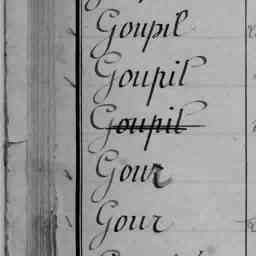 Goupil
Goupil
Goupil
Gour
Gour